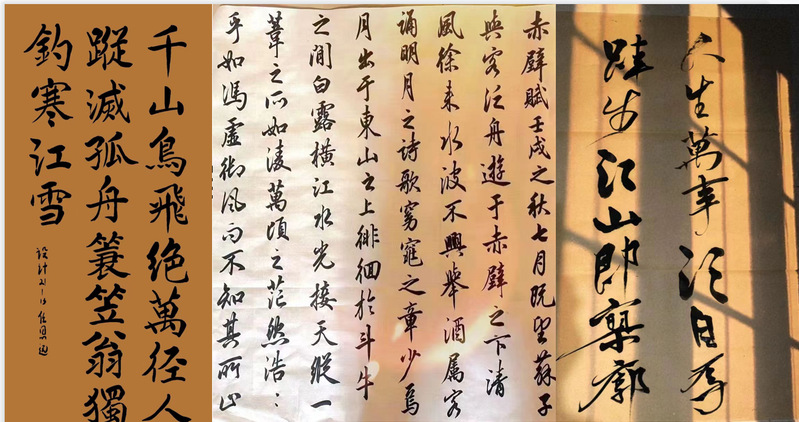 千山鳥飛絕萬径人
蹤滅孤舟蓑笠翁獨
釣寒江雪
赤壁賦壬戌之秋七月既望蘇子
與客泛舟遊于赤壁之下清
風徐来水波不興舉酒屬客
誦明月之诗歌窈窕之章少焉
月出于東山之上徘徊於斗牛
之间白露横江水光接天縱一
葦之所如淩萬頃之茫然浩：
乎如馮虚御风而不知其所止
人生萬事须自為
跬步江山即寥廓